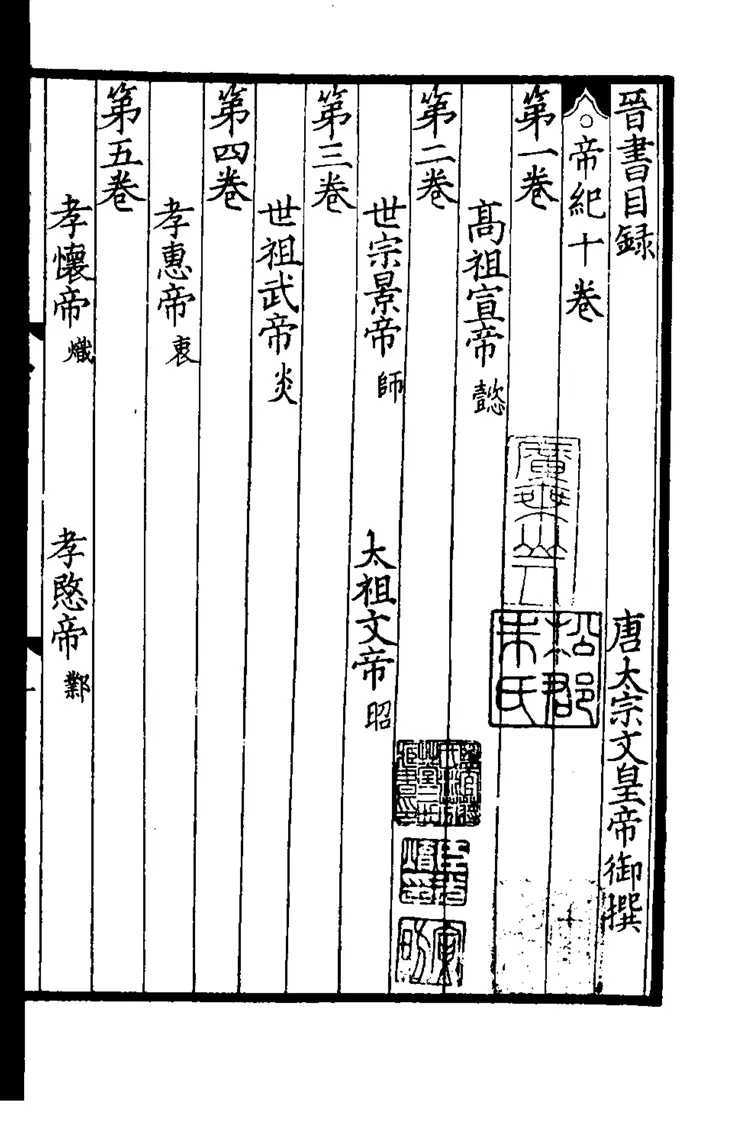 晉書目録
唐太宗文皇帝御撰
帝紀十卷
第一卷
髙祖宣帝 懿
第二卷
世宗景帝 師
太祖文帝 昭
第三卷
世祖武帝 炎
第四卷
孝惠帝 衷
第五卷
孝懷帝 熾
孝愍帝 鄴
松郡朱氏